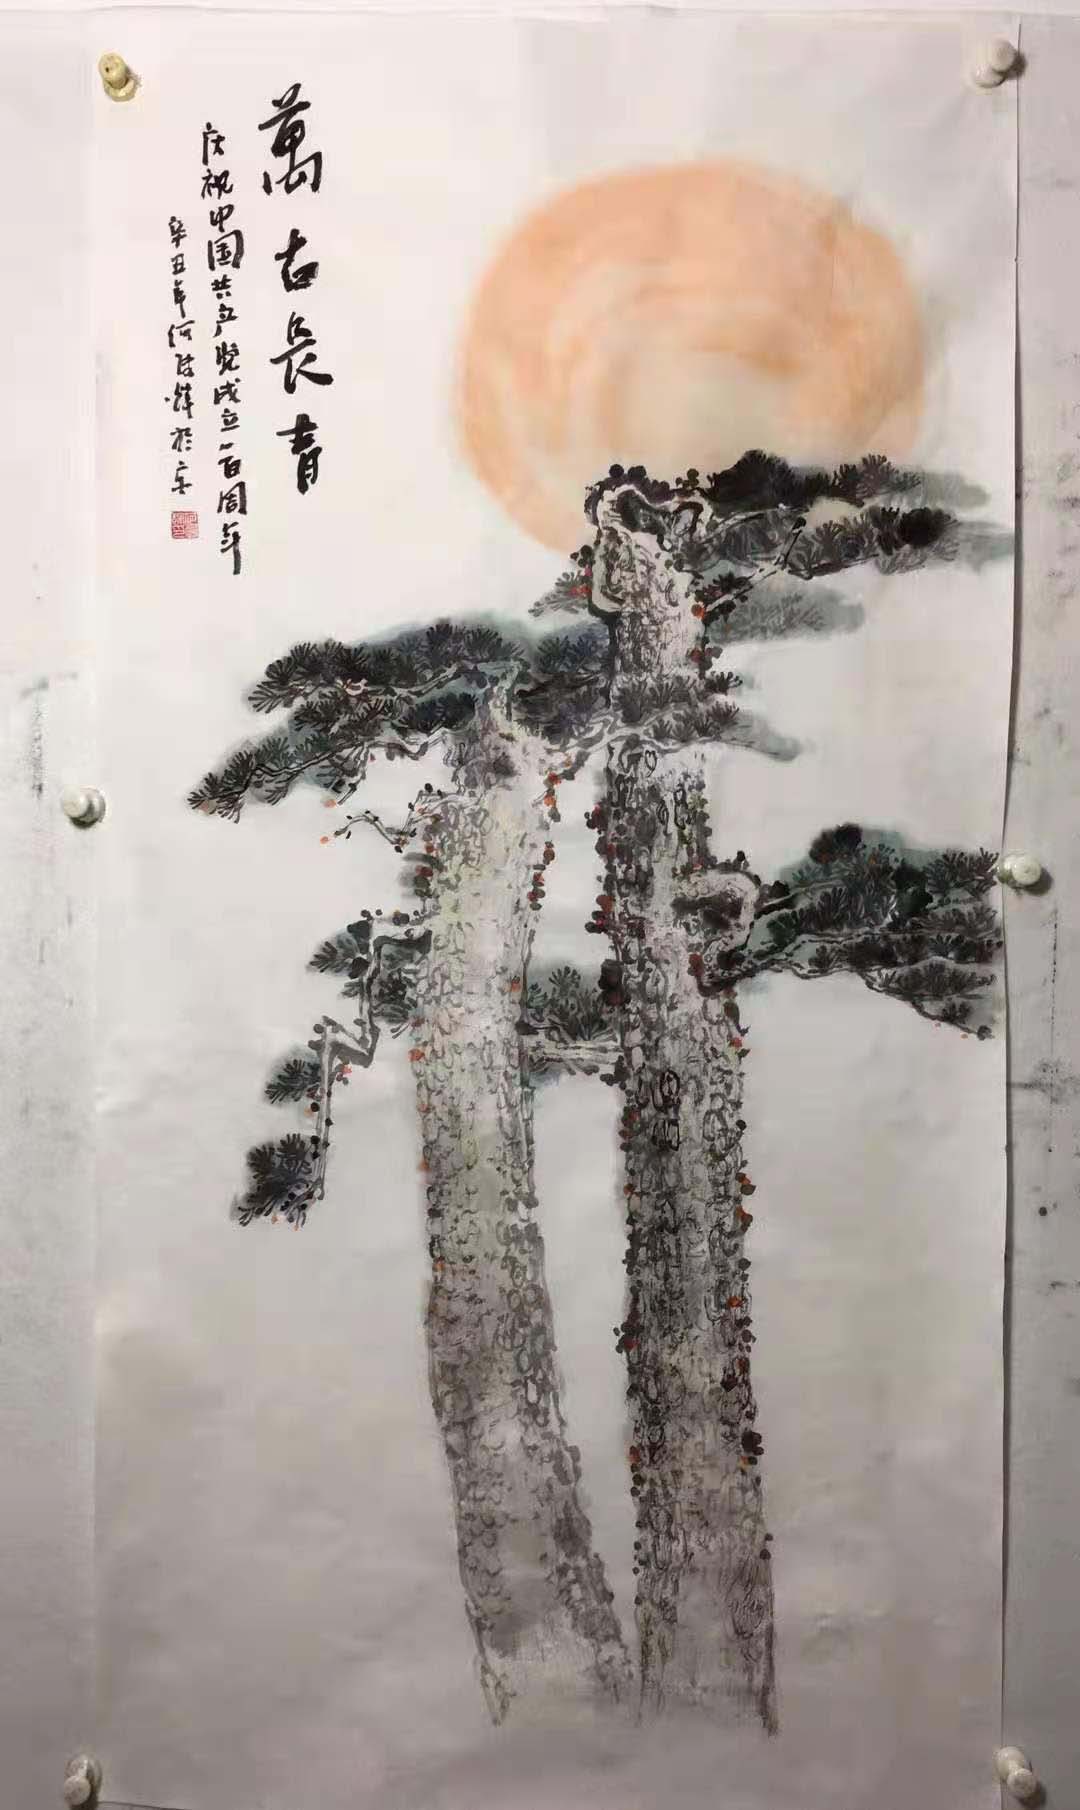 萬古長青
庆祝中国共产党成立一百周年
辛丑年何
於京